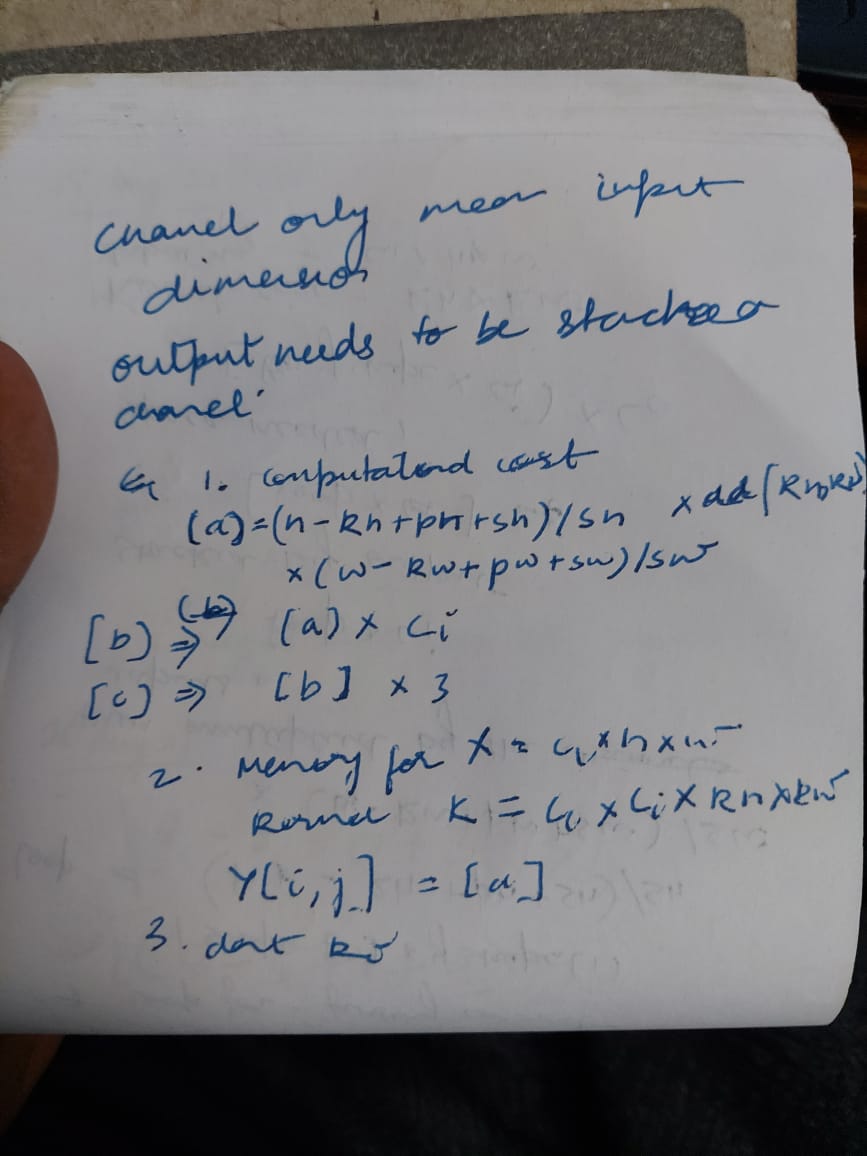 chanel only mean input
dimension
output needs to be stacked
chanel
Eq 1. computational cost
[a] = (h - kh + ph + sh)/sh x add (kh, kw)
x (w - kw + pw + sw)/sw
[b] ⇒ [a] x ci
[c] ⇒ [b] x 3
2. Memory for X = ci x h x w
Kernel K = x ci x kh x kw
Y[i, j] = [a]
3. dont